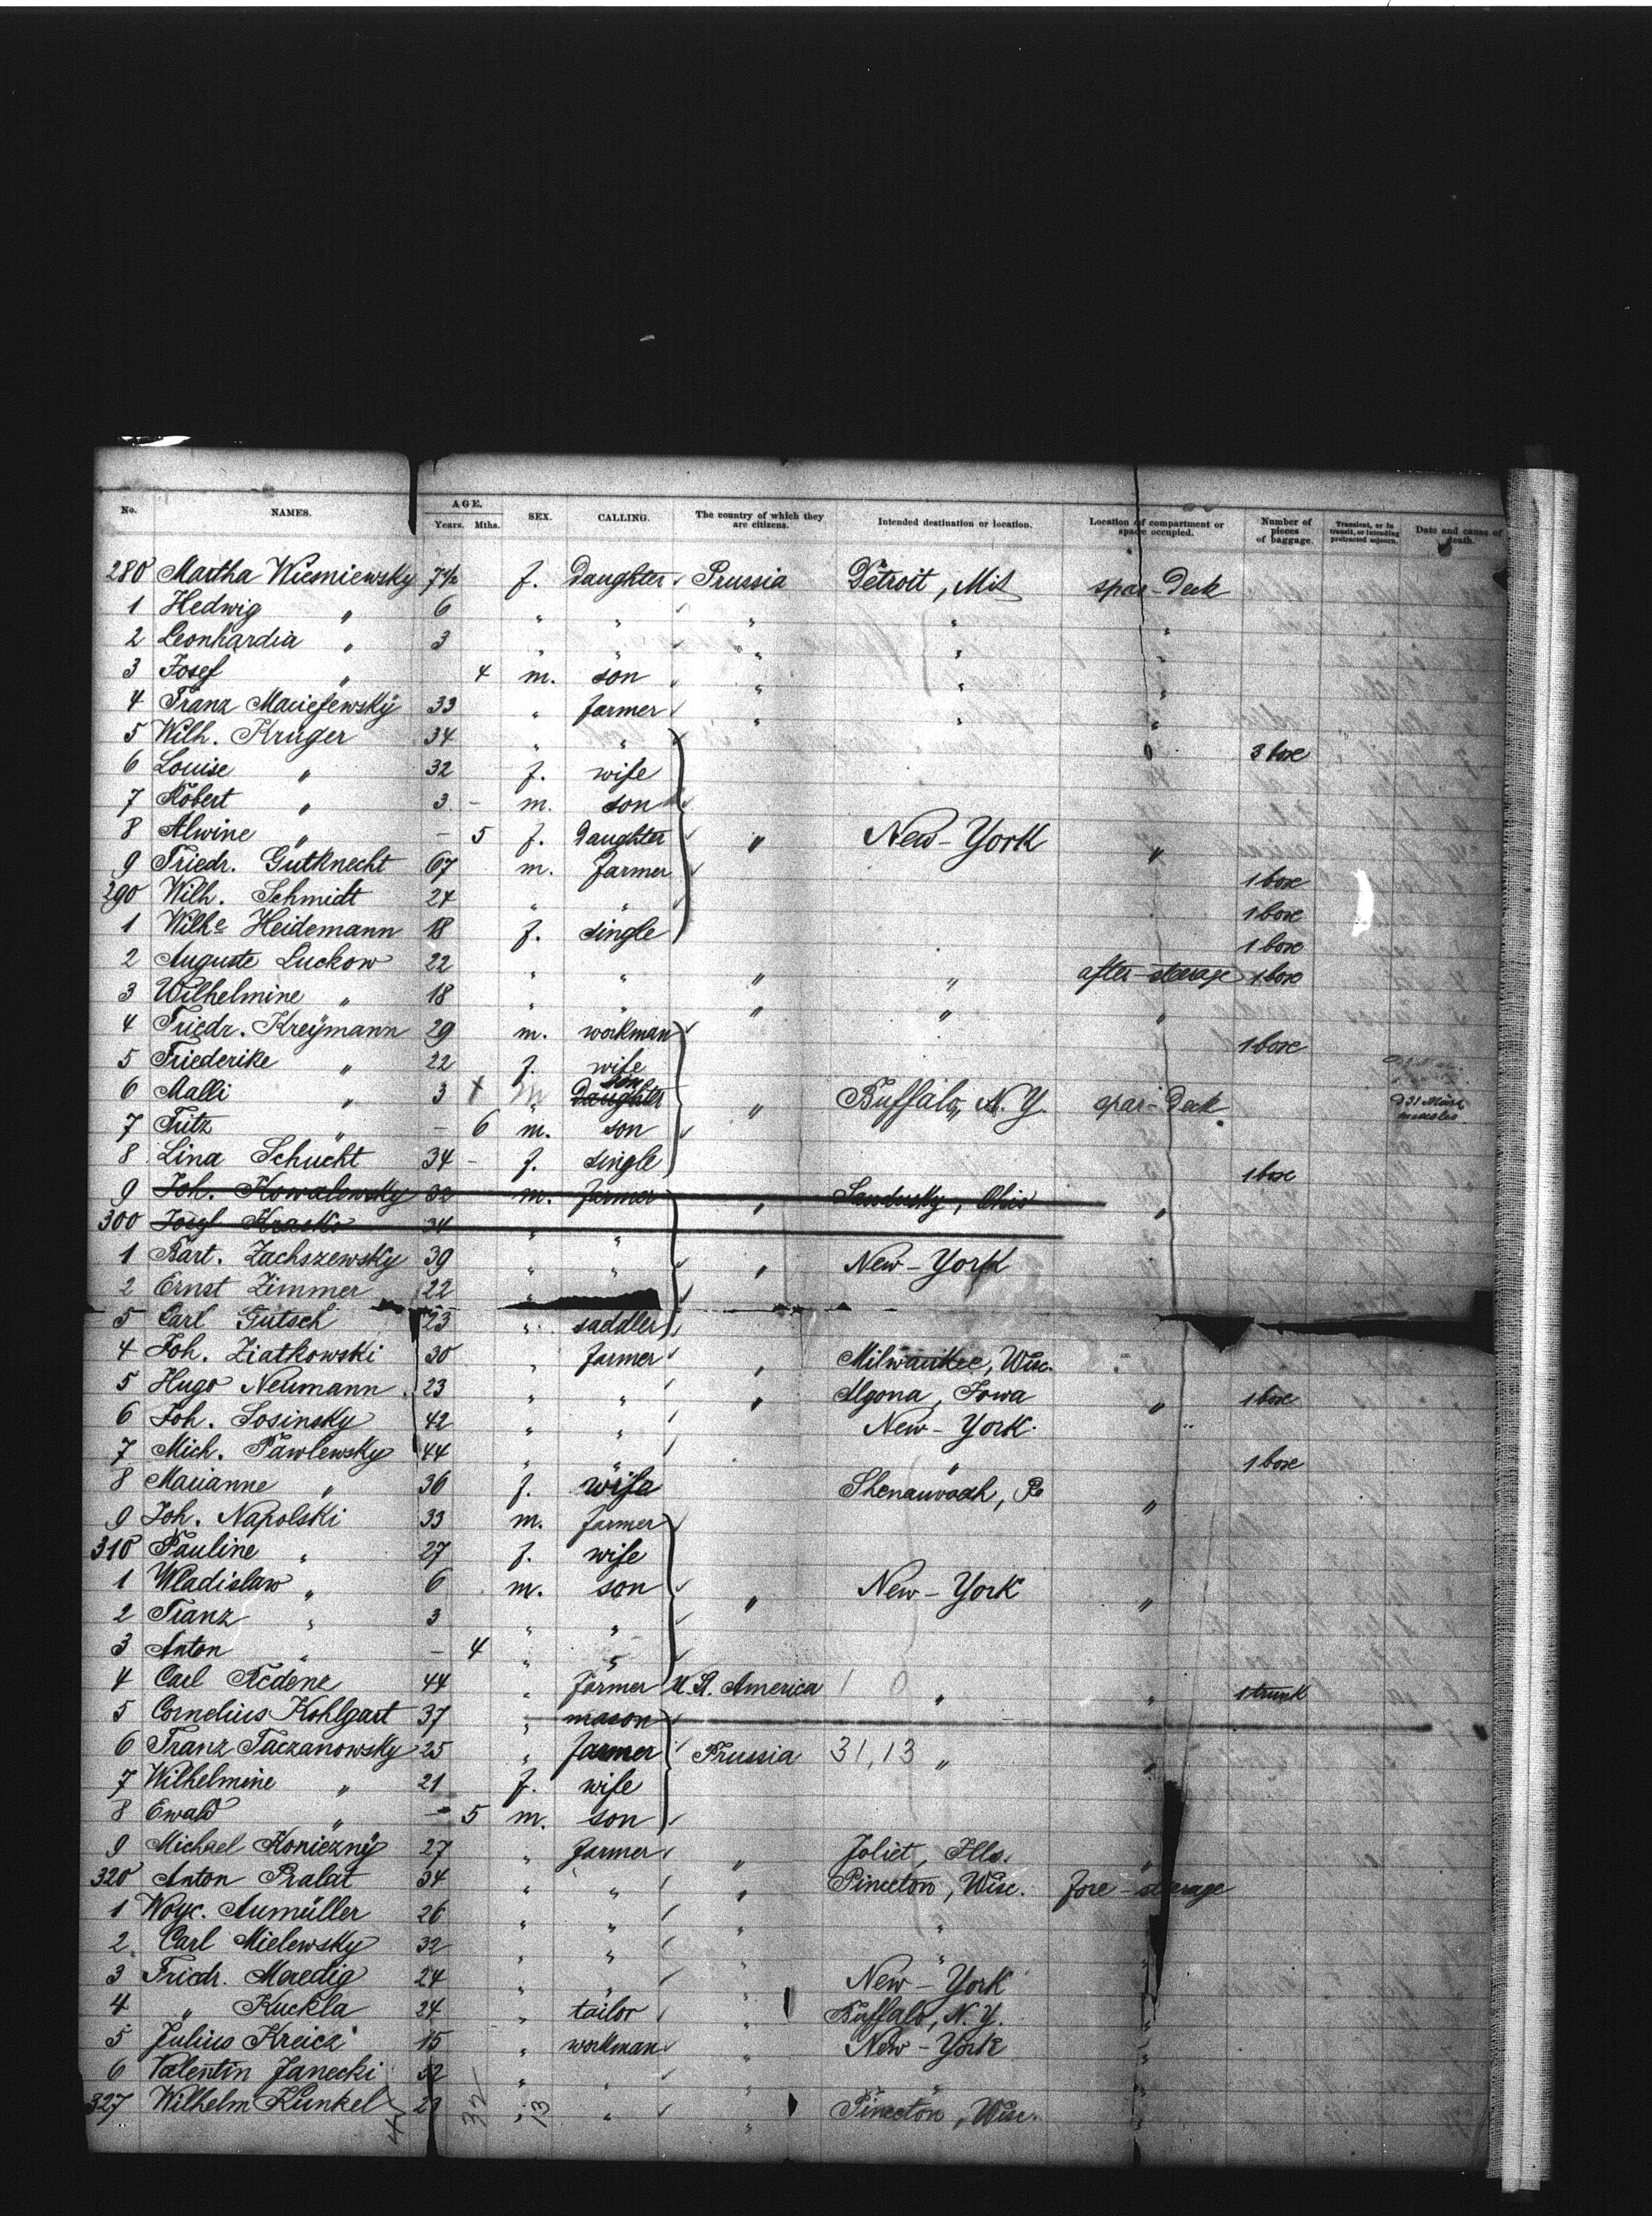 No. NAMES. AGE. Years. Mths. SEX. CALLING. The country of which they are citizens. Intended destination or location. Location of compartment or space occupied. Number of pieces of baggage. Transient, or in transit, or intending protracted sojourn. Date and cause of death.
280 Martha Wiesniewsky 7½ f. Daughter Prussia Detroit, Mit spar-Deck
1 Hedwig " 6 " " " " "
2 Leonhardia " 3 " " " " "
3 Josef " 4 m. son " " "
4 Franz Maciejewsky 33 " farmer " " "
5 Wilh. Kruger 34 " " 3 box
6 Louise " 32 f. wife
7 Robert " 3 - m. son
8 Alwine " - 5 f. Daughter " New-York "
9 Friedr. Gutknecht 67 m. farmer 1 box
290 Wilh. Schmidt 24 " " 1 box
1 Wilhe Heidemann 18 f. single 1 box
2 Auguste Luckow 22 " " " " after-steerage 1 box
3 Wilhelmine " 18 " " " " "
4 Friedr. Kreymann 29 m. workman 1 box
5 Friederike " 22 f. wife
6 Malli " 3 m son Daughter " Buffalo, N.Y. spar-Deck measles
7 Fritz " - 6 m. son
8 Lina Schucht 34 - f. single 1 box
9 Joh. Kowalewsky 32 m. farmer " Sandusky, Ohio "
300 Josef Krasko 34 " "
1 Bart. Zachszewsky 39 " " " New-York
2 Ernst Zimmer 22 "
3 Carl Gutsch 23 " saddler
4 Joh. Ziatkowski 30 " farmer " Milwaukee, Wisc.
5 Hugo Neumann 23 " " " Algona, Iowa " 1 box
6 Joh. Sosinsky 42 " " New-York
7 Mich. Pawlewsky 44 " " " 1 box
8 Marianne " 36 f. wife Shenauvoah, Pa "
9 Joh. Napolski 33 m. farmer
310 Pauline " 27 f. wife
1 Wladislaw " 6 m. son " New-York "
2 Franz " 3 " "
3 Anton " - 4 " "
4 Carl Redenz 44 " farmer U. St. America " " 1 trunk
5 Cornelius Kohlgart 37 " mason
6 Franz Taczanowsky 25 " farmer Prussia 31,13 " "
7 Wilhelmine " 21 f. wife
8 Ewald " - 5 m. son
9 Michael Koniezny 27 " farmer " Joliet, Ills. "
320 Anton Pralat 34 " " " Pinceton, Wisc. fore-steerage
1 Woyc. Aumüller 26 " " " "
2 Carl Mielewsky 32 " " " "
3 Friedr. Meredig 24 " " " New-York "
4 " Kuckla 24 " tailor " Buffalo, N.Y. "
5 Julius Kreicz 15 " workman " New-York "
6 Valentin Janecki 32 " " " " "
327 Wilhelm Kunkel " " " Pinceton, Wisc. "
32 13